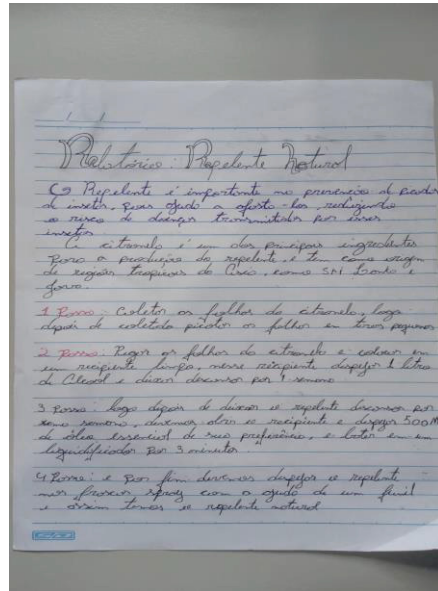 Relatório: Repelente Natural
O Repelente é importante na prevenção de picadas
de insetos, pois ajuda a afasta-los, reduzindo
o risco de doenças transmitidas por esses
insetos
A citronela é um dos principais ingredientes
para a produção do repelente, e tem como origem
de regiões tropicais da Ásia, como Sri Lanka e
Java.
1 Passo: Coletar as folhas da citronela, logo
depois de coletada picotar as folhas em tiras pequenas
2 Passo: Pegar as folhas da citronela e colocar em
um recipiente limpo, nesse recipiente despejar 1 litro
de Álcool e deixar descansar por 1 semana
3 Passo: logo depois de deixar o repelente descansar por
uma semana, devemos abrir o recipiente e despejar 500M
de óleo essencial de sua preferência, e bater em um
liquidificador por 3 minutos.
4 Passo: e por fim devemos despejar o repelente
nos frascos spray com a ajuda de um funil
e assim temos o repelente natural